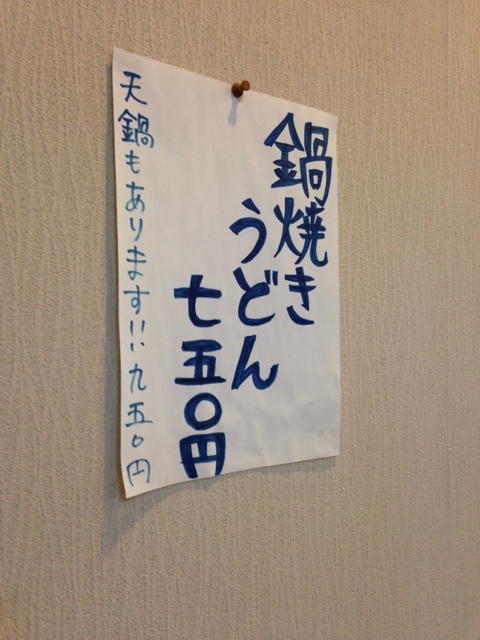 鍋焼き
うどん
七五〇円
天鍋もあります!!九五〇円